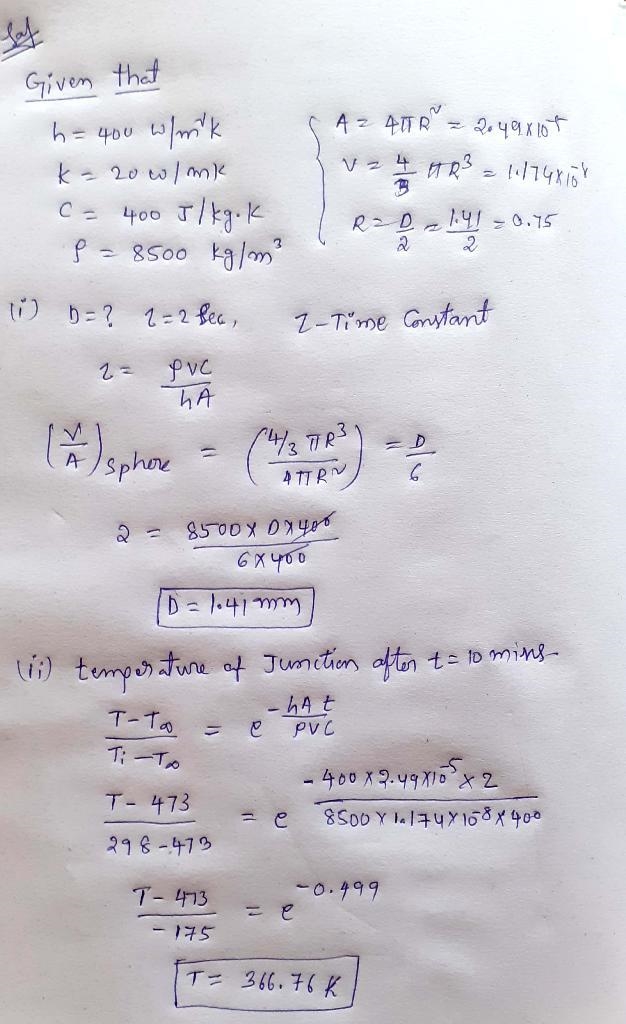 Sol
Given that
h = 400 w/m²k
k = 20 w/mk
C = 400 J/kg.k
ρ = 8500 kg/m³
A = 4πR² = 2.49x10⁻⁵
V = 4/3 πR³ = 1.174x10⁻⁸
R = D/2 = 1.41/2 = 0.75
(i) D=? τ=2 Sec, τ-Time Constant
τ = ρVC/hA
(V/A)sphere = (4/3 πR³/4πR²) = D/6
2 = 8500 x D x 400/6 x 400
D = 1.41 mm
(ii) temperature of Junction after t = 10 mins
T-T∞/Ti-T∞ = e -hAt/ρVC
T-473/298-473 = e -400 x 2.49x10⁻⁵ x 2/8500 x 1.174x10⁻⁸ x 400
T-473/-175 = e -0.499
T = 366.76 K